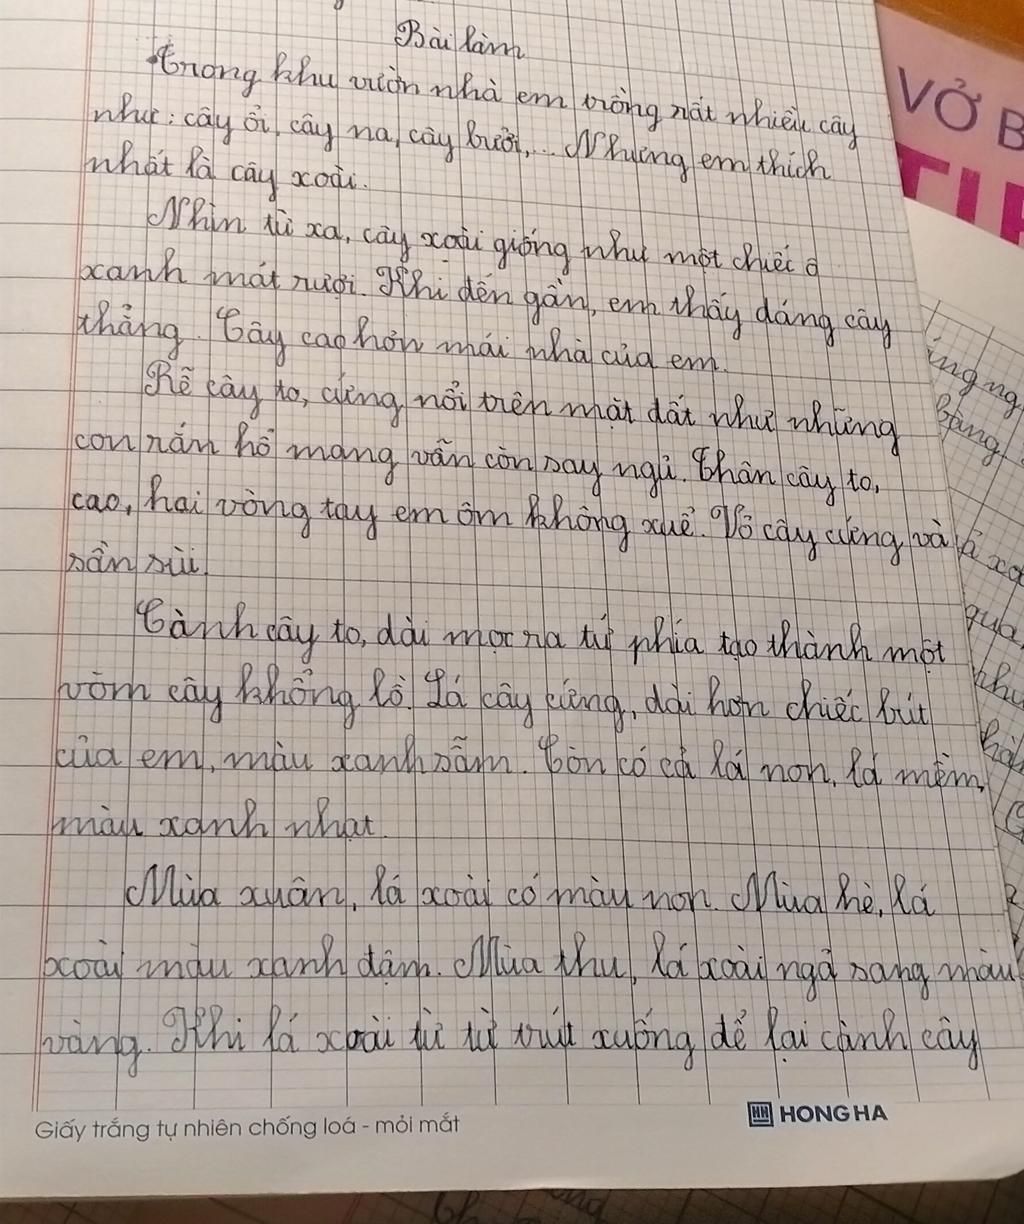 Bài làm
Trong khu vườn nhà em trồng rất nhiều cây
như: cây ổi, cây na, cây bưởi,... Nhưng em thích
nhất là cây xoài.
Nhìn từ xa, cây xoài giống như một chiếc ô
xanh mát rượi. Khi đến gần, em thấy dáng cây
thẳng. Cây cao hơn mái nhà của em.
Rễ cây to, cứng nổi trên mặt đất như những
con rắn hổ mang vẫn còn say ngủ. Thân cây to,
cao, hai vòng tay em ôm không xuể. Vỏ cây cứng và
sần sùi.
Cành cây to, dài mọc ra tứ phía tạo thành một
vòm cây khổng lồ. Lá cây cứng, dài hơn chiếc bút
của em, màu xanh sẫm. Còn có cả lá non, lá mềm,
màu xanh nhạt.
Mùa xuân, lá xoài có màu non. Mùa hè, lá
xoài màu xanh đậm. Mùa thu, lá xoài ngả sang màu
vàng. Khi lá xoài từ từ trút xuống để lại cành cây
Giấy trắng tự nhiên chống loá - mỏi mắt
HONG HA
VỞ B